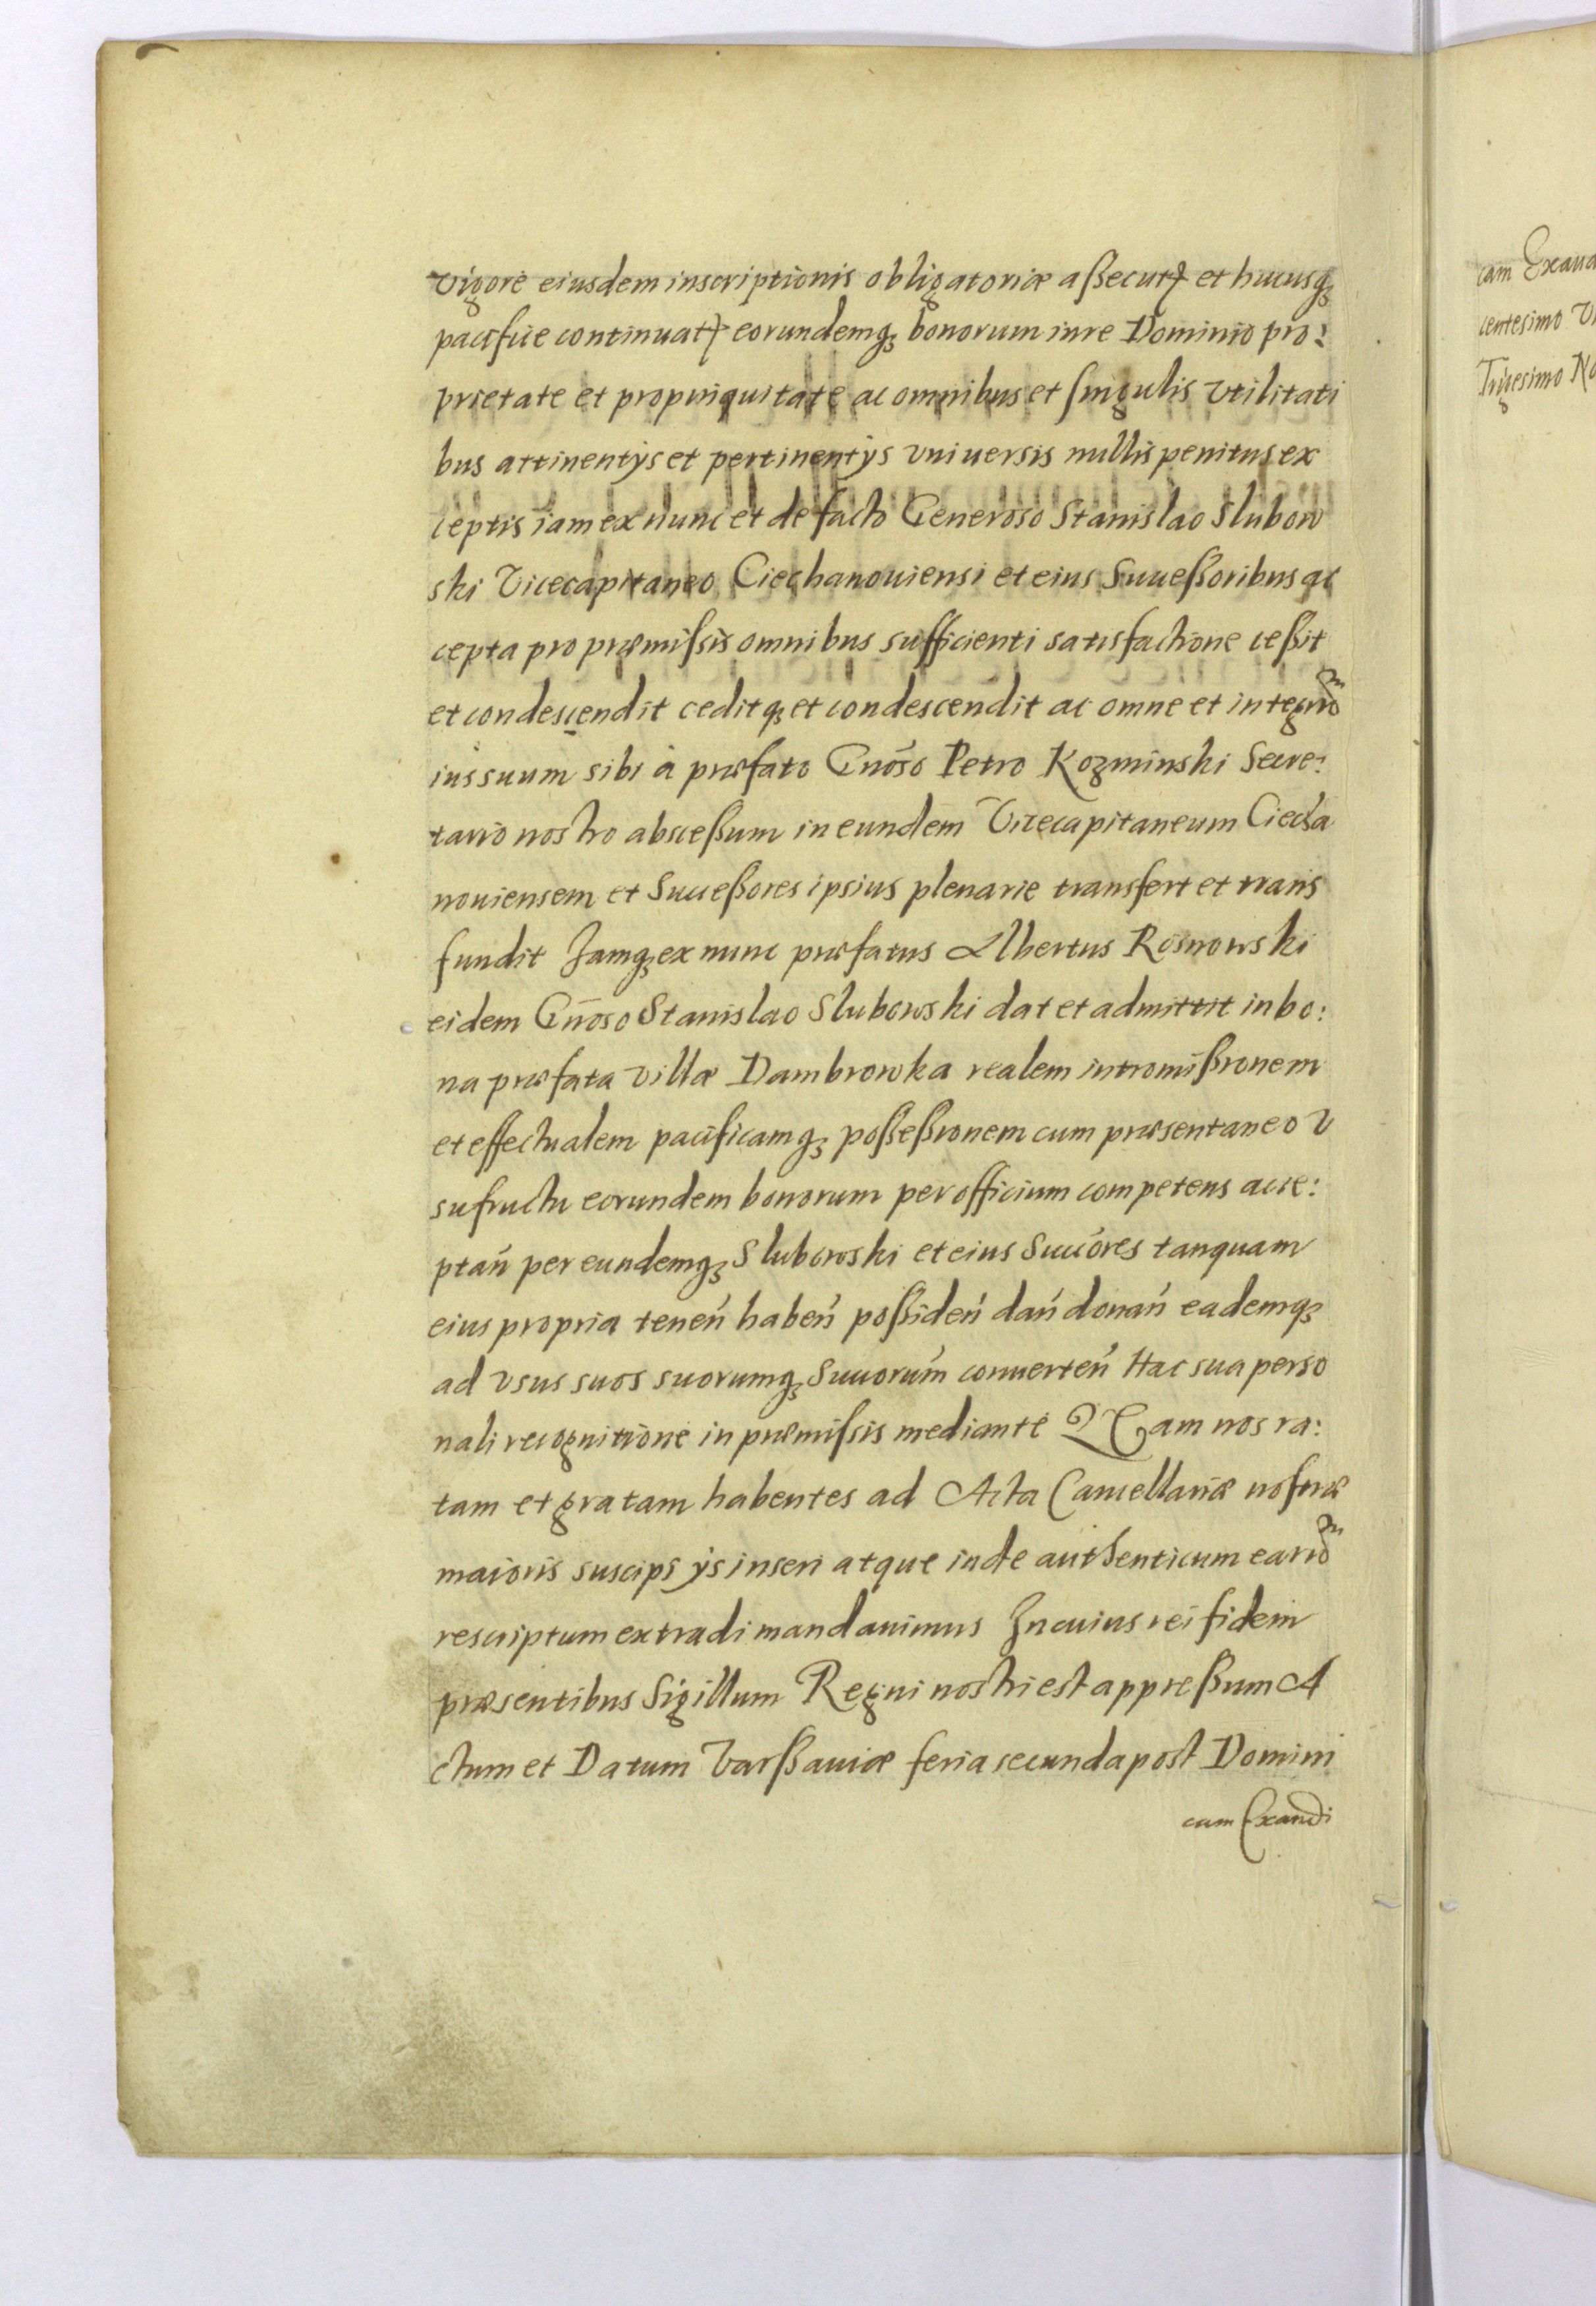 vigore eiusdem inscriptionis obligatoriæ aßecutꝭ et hucusqꝫ
pacifice continuatꝭ eorundemqꝫ bonorum iure Dominio pro:
prietate et propinquitate ac omnibus et singulis vtilitati
bus attinentÿs et pertinentÿs vniuersis nullis penitus ex
ceptis iam ex nunc et de facto Generoso Stanislao Slubow
ski Vicecapitaneo Ciechanouiensi et eius Succeßoribus ac
cepta pro præmißis omnibus sufficienti satisfactione ceßit
et condescendit ceditqꝫ et condescendit ac omne et integrũ
ius suum sibi à præfato Gnõso Petro Kozminski Secre:
tario nostro absceßum in eundem Vicecapitaneum Ciecha
nouiensem et Succeßores ipsius plenarie transfert et trans
fundit Jamqꝫ ex nunc præfatus Albertus Rosnowski
eidem Gñoso Stanislao Slubowski dat et admittit in bo:
na præfata villæ Dambrowka realem intromißionem
et effectualem pacificamqꝫ poßeßionem cum præsentaneo v
sufructu eorundem bonorum per officium competens acce:
ptań per eundemqꝫ Slubowski et eius Succóres tanquam
eius propria teneń habeń poßideń dań donań eademqꝫ
ad vsus suos suorumqꝫ Succorúm conuerteń Hac sua perso
nali recognitione in præmißis mediante Qam nos ra:
tam et gratam habentes ad Acta Cancellariæ nostræ
maioris suscipi ÿs inseri atque inde authenticum earũ
rescriptum extradi mandauimus In cuius rei fidem
præsentibus Sigillum Regni nostri est appreßum A
ctum et Datum Varßauiæ feria secunda post Domini
cam Exaudi
cam Exau
centesimo
Tricesimo